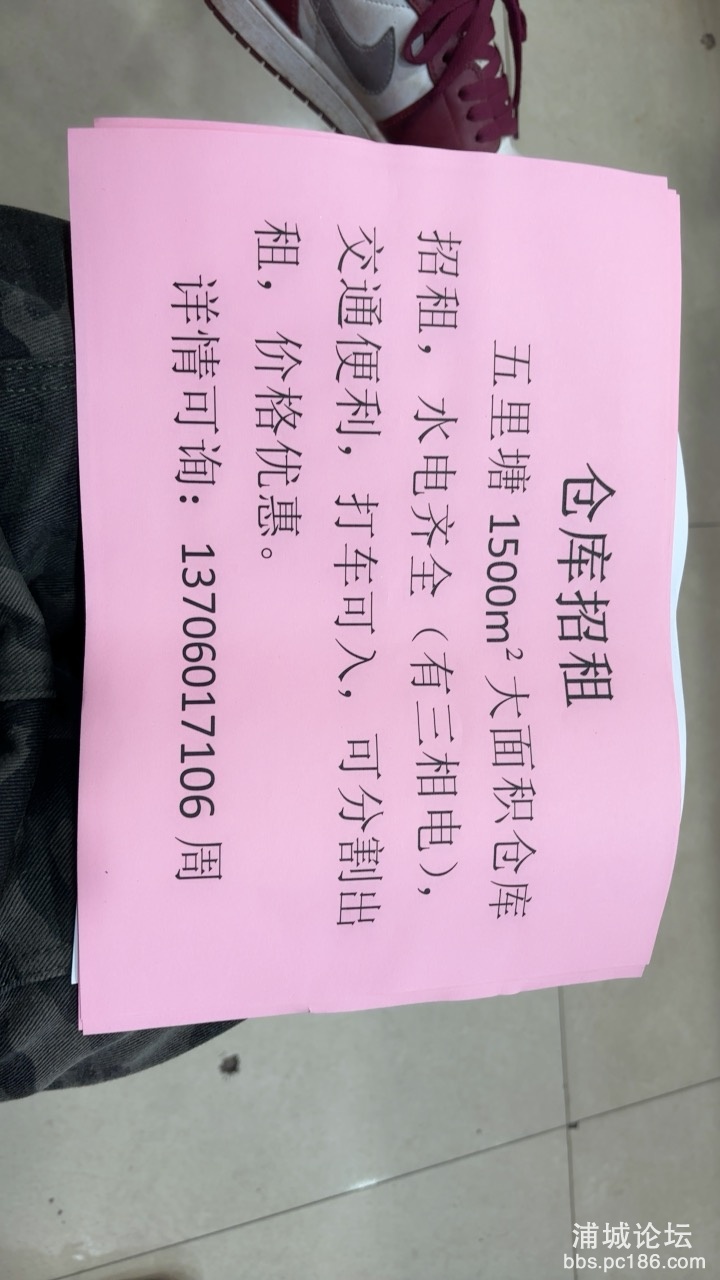 仓库招租
五里塘 1500m² 大面积仓库
招租，水电齐全（有三相电），
交通便利，打车可入，可分割出
租，价格优惠。
详情可询：13706017106 周
浦城论坛
bbs.pc186.com